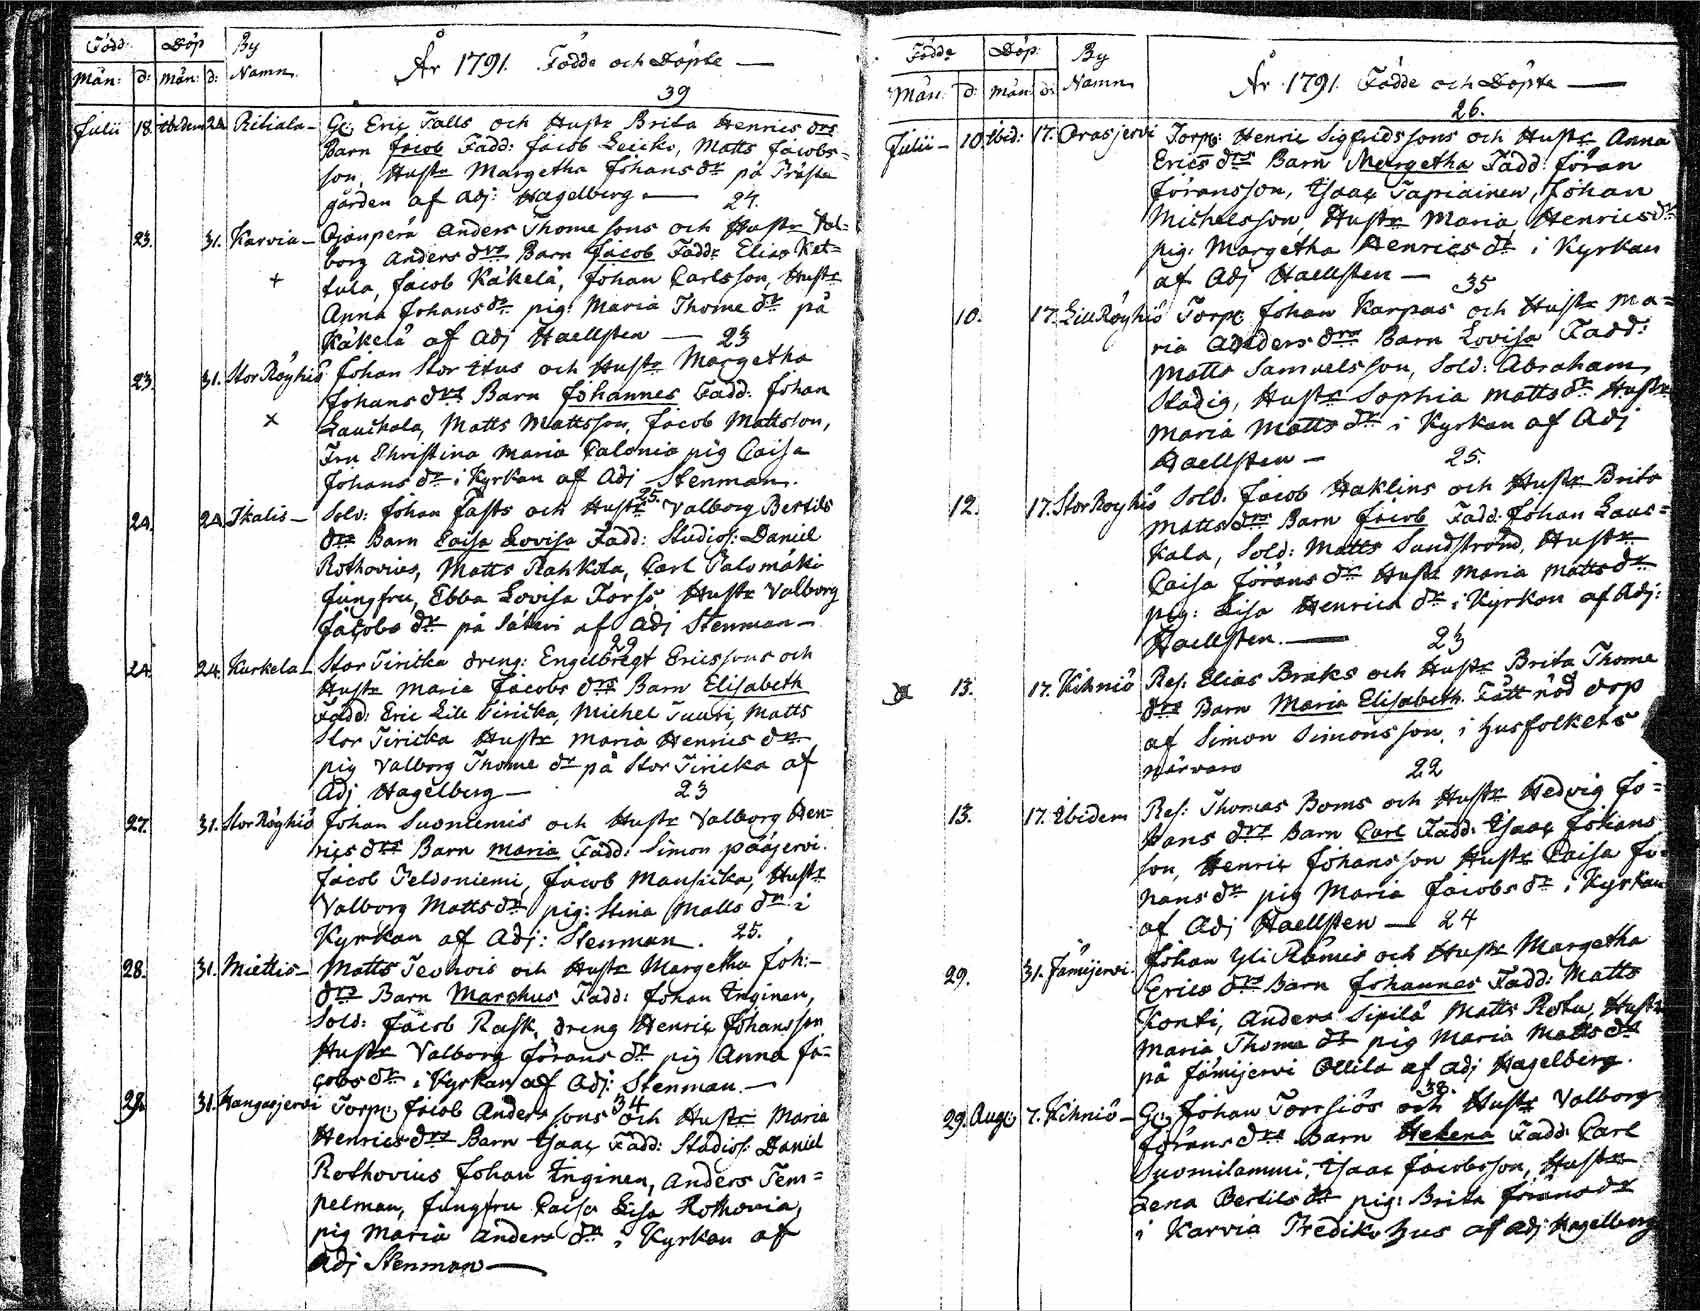 Född: Döp By År 1791. Födde och Döpte —
Mån: d: Mån: d: Namn
39
Julii 18. ibidem 24 Ritiala — Gl: Eric Falls och Hustr Brita Henrics drs
Barn Jacob Fadd: Jacob Leicko, Matts Jacobs=
son, Hustr Margetha Johans dr på Präste
gården af Adj: Hagelberg — 24.
23. 31. Karvia — Ojanperä Anders Thome sons och Hustr Val=
borg Anders drs Barn Jacob Fadd: Elias Ket=
tula, Jacob Käkelä, Johan Carlsson, Hustr
+
Anna Johans dr pig: Maria Thome dr på
Käkelä af Adj Haellsten — 23
23. 31. Stor Röyhiö Johan Stor Itus och Hustr Margetha
Johans drs Barn Johannes Fadd: Johan
× Lauckala, Matts Mattsson, Jacob Mattsson,
Fru Christina Maria Calonia pig Caisa
Johans dr i Kyrkan af Adj Stenman.
25.
24. 24 Ikalis — Sold: Johan Fasts och Hustr Valborg Bertils
drs Barn Caisa Lovisa Fadd: Studios: Daniel
Rothovius, Matts Rahkola, Carl Palomäki
Jungfru, Ebba Lovisa Forss, Hustr Valborg
Jacobs dr på Säteri af Adj Stenman —
29
24. 24. Kurkela — Stor Tiricka dreng: Engelbregt Ericssons och
Hustr Maria Jacobs drs Barn Elisabeth
Fadd: Eric Lill Tiricka, Michel Tuuri, Matts
Stor Tiricka Hustr Maria Henrics dr
pig Valborg Thome dr på Stor Tiricka af
Adj Hagelberg — 23
27. 31. Stor Röyhiö Johan Suoniemis och Hustr Valborg Hen=
rics drs Barn Maria Fadd: Simon Pääjervi.
Jacob Peldoniemi, Jacob Mansicka, Hustr
Valborg Matts dr pig: Stina Matts dr i
Kyrkan af Adj: Stenman. 25.
28. 31. Miettis — Matts Teonois och Hustr Margetha Joh: —
drs Barn Marchus Fadd: Johan Inginen,
Sold: Jacob Rask, dreng Henric Johansson
Hustr Valborg Jörans dr pig Anna Ja=
cobs dr i Kyrkan af Adj: Stenman. —
34
29. 31. Kangasjervi Torp: Jacob Anders sons och Hustr Maria
Henrics drs Barn Ysaac Fadd: Studios: Daniel
Rothovius Johan Inginen, Anders Tem=
pelman, Jungfru Caisa Lisa Rothovia,
pig Maria Anders dr i Kyrkan af
Adj Stenman —
Födde Döp: By År 1791 Födde och Döpte —
Mån: d: Mån: d: Namn
26.
Julii — 10. ibid: 17. Orasjervi Torp: Henric Sigfridssons och Hustr Anna
Erics drs Barn Margetha Fadd: Jöran
Jöransson, Ysaac Tapiainen, Johan
Michelsson, Hustr Maria Henrics dr
pig: Margetha Henrics dr i Kyrkan
af Adj Haellsten — 35
10. 17. Lill Röyhiö Torp: Johan Karpas och Hustr Ma=
ria Anders drs Barn Lovisa Fadd:
Matts Samuelsson, Sold: Abraham
Stadig, Hustr Sophia Matts dr Hustr
Maria Matts dr i Kyrkan af Adj
Haellsten — 25.
12. 17. Stor Royhiö Sold: Jacob Haklins och Hustr Brita
Matts drs Barn Jacob Fadd: Johan Laus=
kala, Sold: Matts Sundström, Hustr
Caisa Jörans dr Hustr Maria Matts dr
pig: Lisa Henrics dr i Kyrkan af Adj:
Haellsten. — 23
13. 17. Kihniö Res: Elias Braks och Hustr Brita Thome
drs Barn Maria Elisabeth. Fått nöd döp
af Simon Simonsson, i husfolkets
närvaro 22
13. 17. Ibidem Res: Thomas Boms och Hustr Hedvig Jo=
hans drs Barn Carl Fadd: Ysaac Johans
son, Henric Johansson Hustr Caisa Jo=
hans dr pig Maria Jacobs dr i Kyrkan
af Adj Haellsten — 24
29. 31. Jämijervi. Johan Yli Rämis och Hustr Margetha
Erics drs Barn Johannes Fadd: Matts
Konti, Anders Sipilä Matts Rota, Hustr
Maria Thome dr pig Maria Matts dr
på Jämijervi Ollila af Adj Hagelberg.
38.
29. Aug: 7. Kihniö — Gl: Johan Torrsiös och Hustr Valborg
Jörans drs Barn Helena Fadd: Carl
Suomilammi, Ysaac Jacobsson, Hustr
Lena Bertils dr pig: Brita Jörans dr
i Karvia Prediko hus af Adj Hagelberg